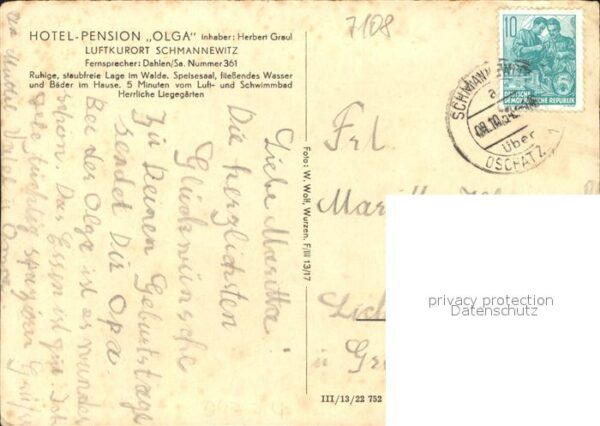 HOTEL-PENSION „OLGA" Inhaber: Herbert Graul
LUFTKURORT SCHMANNEWITZ
Fernsprecher: Dahlen/Sa. Nummer 361
Ruhige, staubfreie Lage im Walde. Speisesaal, fließendes Wasser
und Bäder im Hause. 5 Minuten vom Luft- und Schwimmbad
Herrliche Liegegärten
7108
10
DEUTSCHE
DEMOKRATISCHE REPUBLIK
SCHMANNEWITZ
a
über
OSCHATZ
Liebe Maritta!
Die herzlichsten
Glückwünsche
zu Deinen Geburtstage
sendet Dir Opa.
Bei der Olga ist es wunder
schön. Das Essen ist gut. Ich
gehe tüchtig spazieren
Foto: W. Wolf, Wurzen. F/III 13/17
Frl.
III/13/22 752
privacy protection
Datenschutz